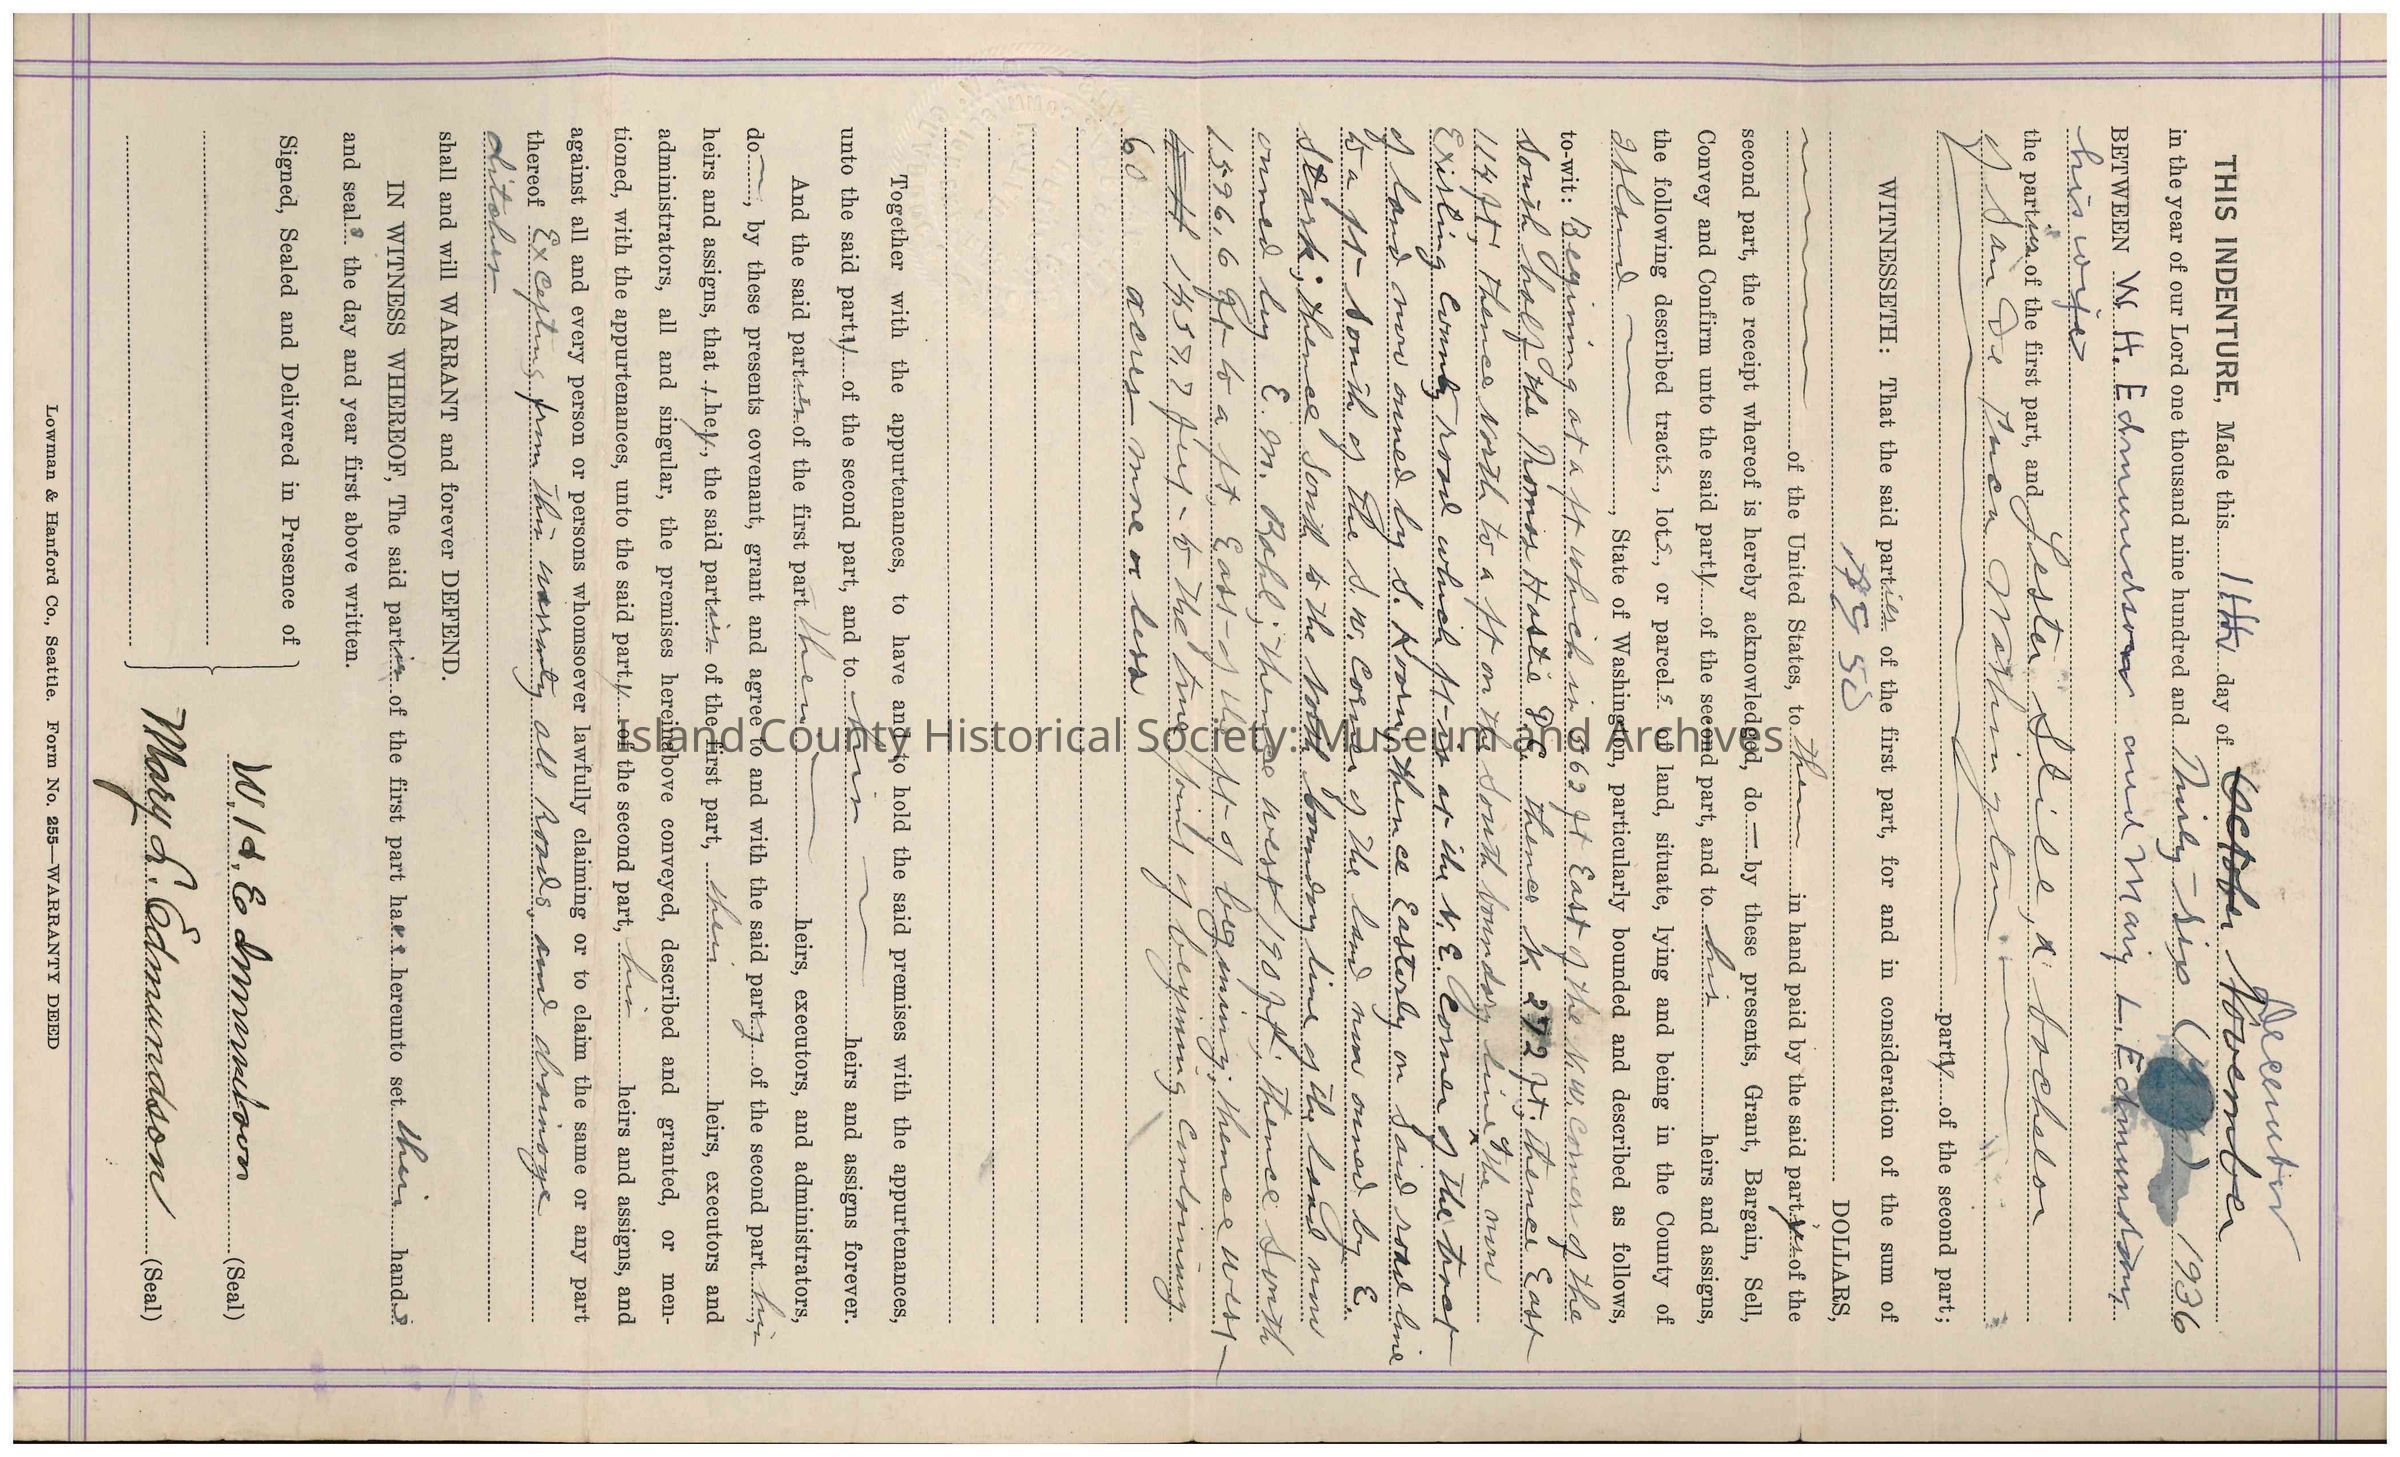 December
THIS INDENTURE, Made this 11th day of October November
in the year of our Lord one thousand nine hundred and Thirty-six ( ) 1936
BETWEEN W. H. Edmundson and Mary L. Edmundson,
his wife
the parties of the first part, and Lester Stile, a bachelor
of San De Fuca Washington
party of the second part;
WITNESSETH: That the said parties of the first part, for and in consideration of the sum of
DOLLARS,
of the United States, to them in hand paid by the said party of the
second part, the receipt whereof is hereby acknowledged, do by these presents, Grant, Bargain, Sell,
Convey and Confirm unto the said party of the second part, and to his heirs and assigns,
the following described tracts, lots, or parcels of land, situate, lying and being in the County of
Island, State of Washington, particularly bounded and described as follows,
to-wit: Begining at a pt which is 562 ft East of the N.W. Corner of the
South half of the Thomas Hastie D.C. thence N 272 ft. thence East
114 ft; thence North to a pt on the South boundary line of the now
Existing County road which pt is at the N.E. Corner of the tract
of land now owned by S. Koning thence Easterly on said road line
to a pt South of the S.W. Corner of the land now owned by E.
Stark; thence South to the South boundary line of the land now
owned by E. M. Bahl; thence west 190 ft; thence South
1596.6 ft to a pt, East of the pt of beginning; thence west
1457.7 feet to the true point of beginning containing
60 acres more or less
Together with the appurtenances, to have and to hold the said premises with the appurtenances,
unto the said party of the second part, and to his heirs and assigns forever.
And the said parties of the first part their heirs, executors, and administrators,
do, by these presents covenant, grant and agree to and with the said party of the second part his
heirs and assigns, that they, the said parties of the first part, their heirs, executors and
administrators, all and singular, the premises hereinabove conveyed, described and granted, or men-
tioned, with the appurtenances, unto the said party of the second part, his heirs and assigns, and
against all and every person or persons whomsoever lawfully claiming or to claim the same or any part
thereof Excepting from this warranty all Roads, and drainage
ditches
shall and will WARRANT and forever DEFEND.
IN WITNESS WHEREOF, The said parties of the first part have hereunto set their hands
and seals the day and year first above written.
Signed, Sealed and Delivered in Presence of
W. H. Edmundson (Seal)
Mary L. Edmundson (Seal)
Lowman & Hanford Co., Seattle. Form No. 255—WARRANTY DEED
Island County Historical Society: Museum and Archives